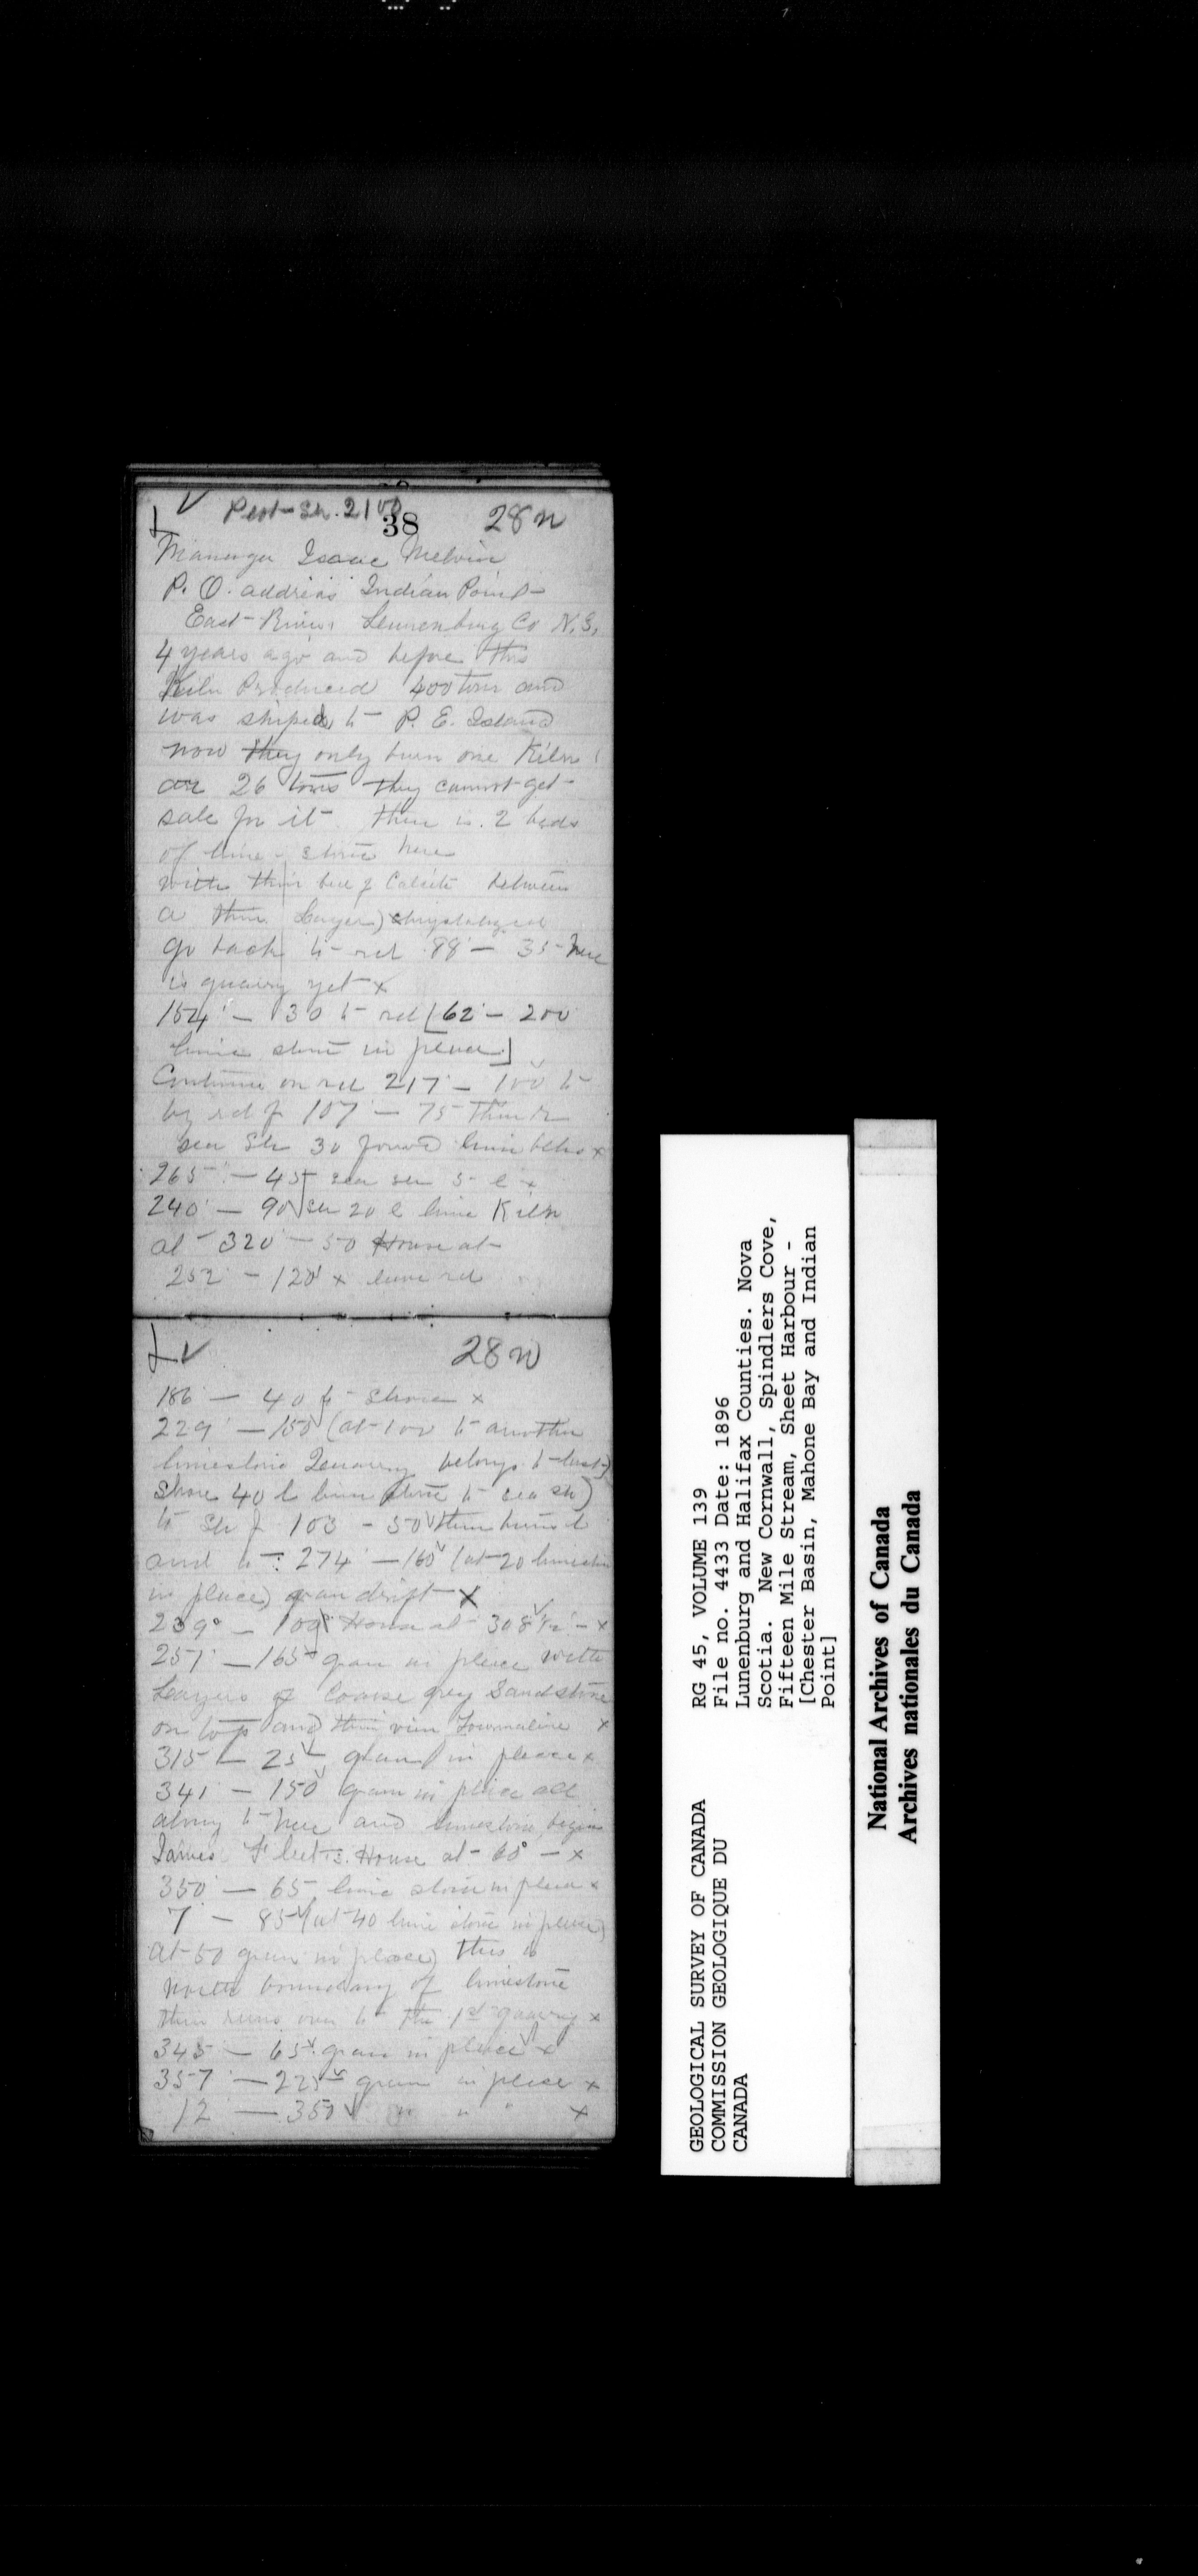 Plot - Sh. 2100
38 28 N
Manager Isaac Melvin
P. O. address Indian Point
East River Lunenburg Co N.S.
4 years ago and before this
Kiln Produced 400 tons and
was shiped to P. E. Island
now they only burn one Kiln
26 tons they cannot get
sale for it there is 2 beds
of lime stone here
with thin bed of Calcite between
a thin Layer)
go back to rd 88 - 35 here
is quarry yet x
154 - 30 to rd [62 - 200
lime stone in place]
Continue on rd 217 - 100 to
by rd of 107 - 75 then to
sea Sh 30 found lime x
265 - 45 sea 5 l x
240 - 90 20 l lime Kiln
at 320 - 50 House at
252 - 120 x leave rd
28 N
186 - 40 to shore x
229 - 150 (at 100 to another
limestone Quarry belongs to last)
Shore 40 l lime stone to sea sh)
to Sh of 103 - 50 then turn l
and to 274 - 160 (at 20 limestone
in place) gran drift x
239° - 100 House at 308 1/2 - x
251 - 165 gran in place with
Layers of Coarse grey Sandstone
on top and thin vein Tourmaline x
315 - 25 gran in place x
341 - 150 gran in place all
along to here and limestone begins
James House at 60° - x
350 - 65 lime stone in place x
7 - 85 (at 40 lime stone in place)
at 50 gran in place) this is
North boundary of limestone
then runs over to the 1st quarry x
345 - 65 gran in place x
357 - 225 gran in place x
12 - 350 " " " x
GEOLOGICAL SURVEY OF CANADA
COMMISSION GEOLOGIQUE DU
CANADA
RG 45, VOLUME 139
File no. 4433 Date: 1896
Lunenburg and Halifax Counties. Nova
Scotia. New Cornwall, Spindlers Cove,
Fifteen Mile Stream, Sheet Harbour -
[Chester Basin, Mahone Bay and Indian
Point]
National Archives of Canada
Archives nationales du Canada